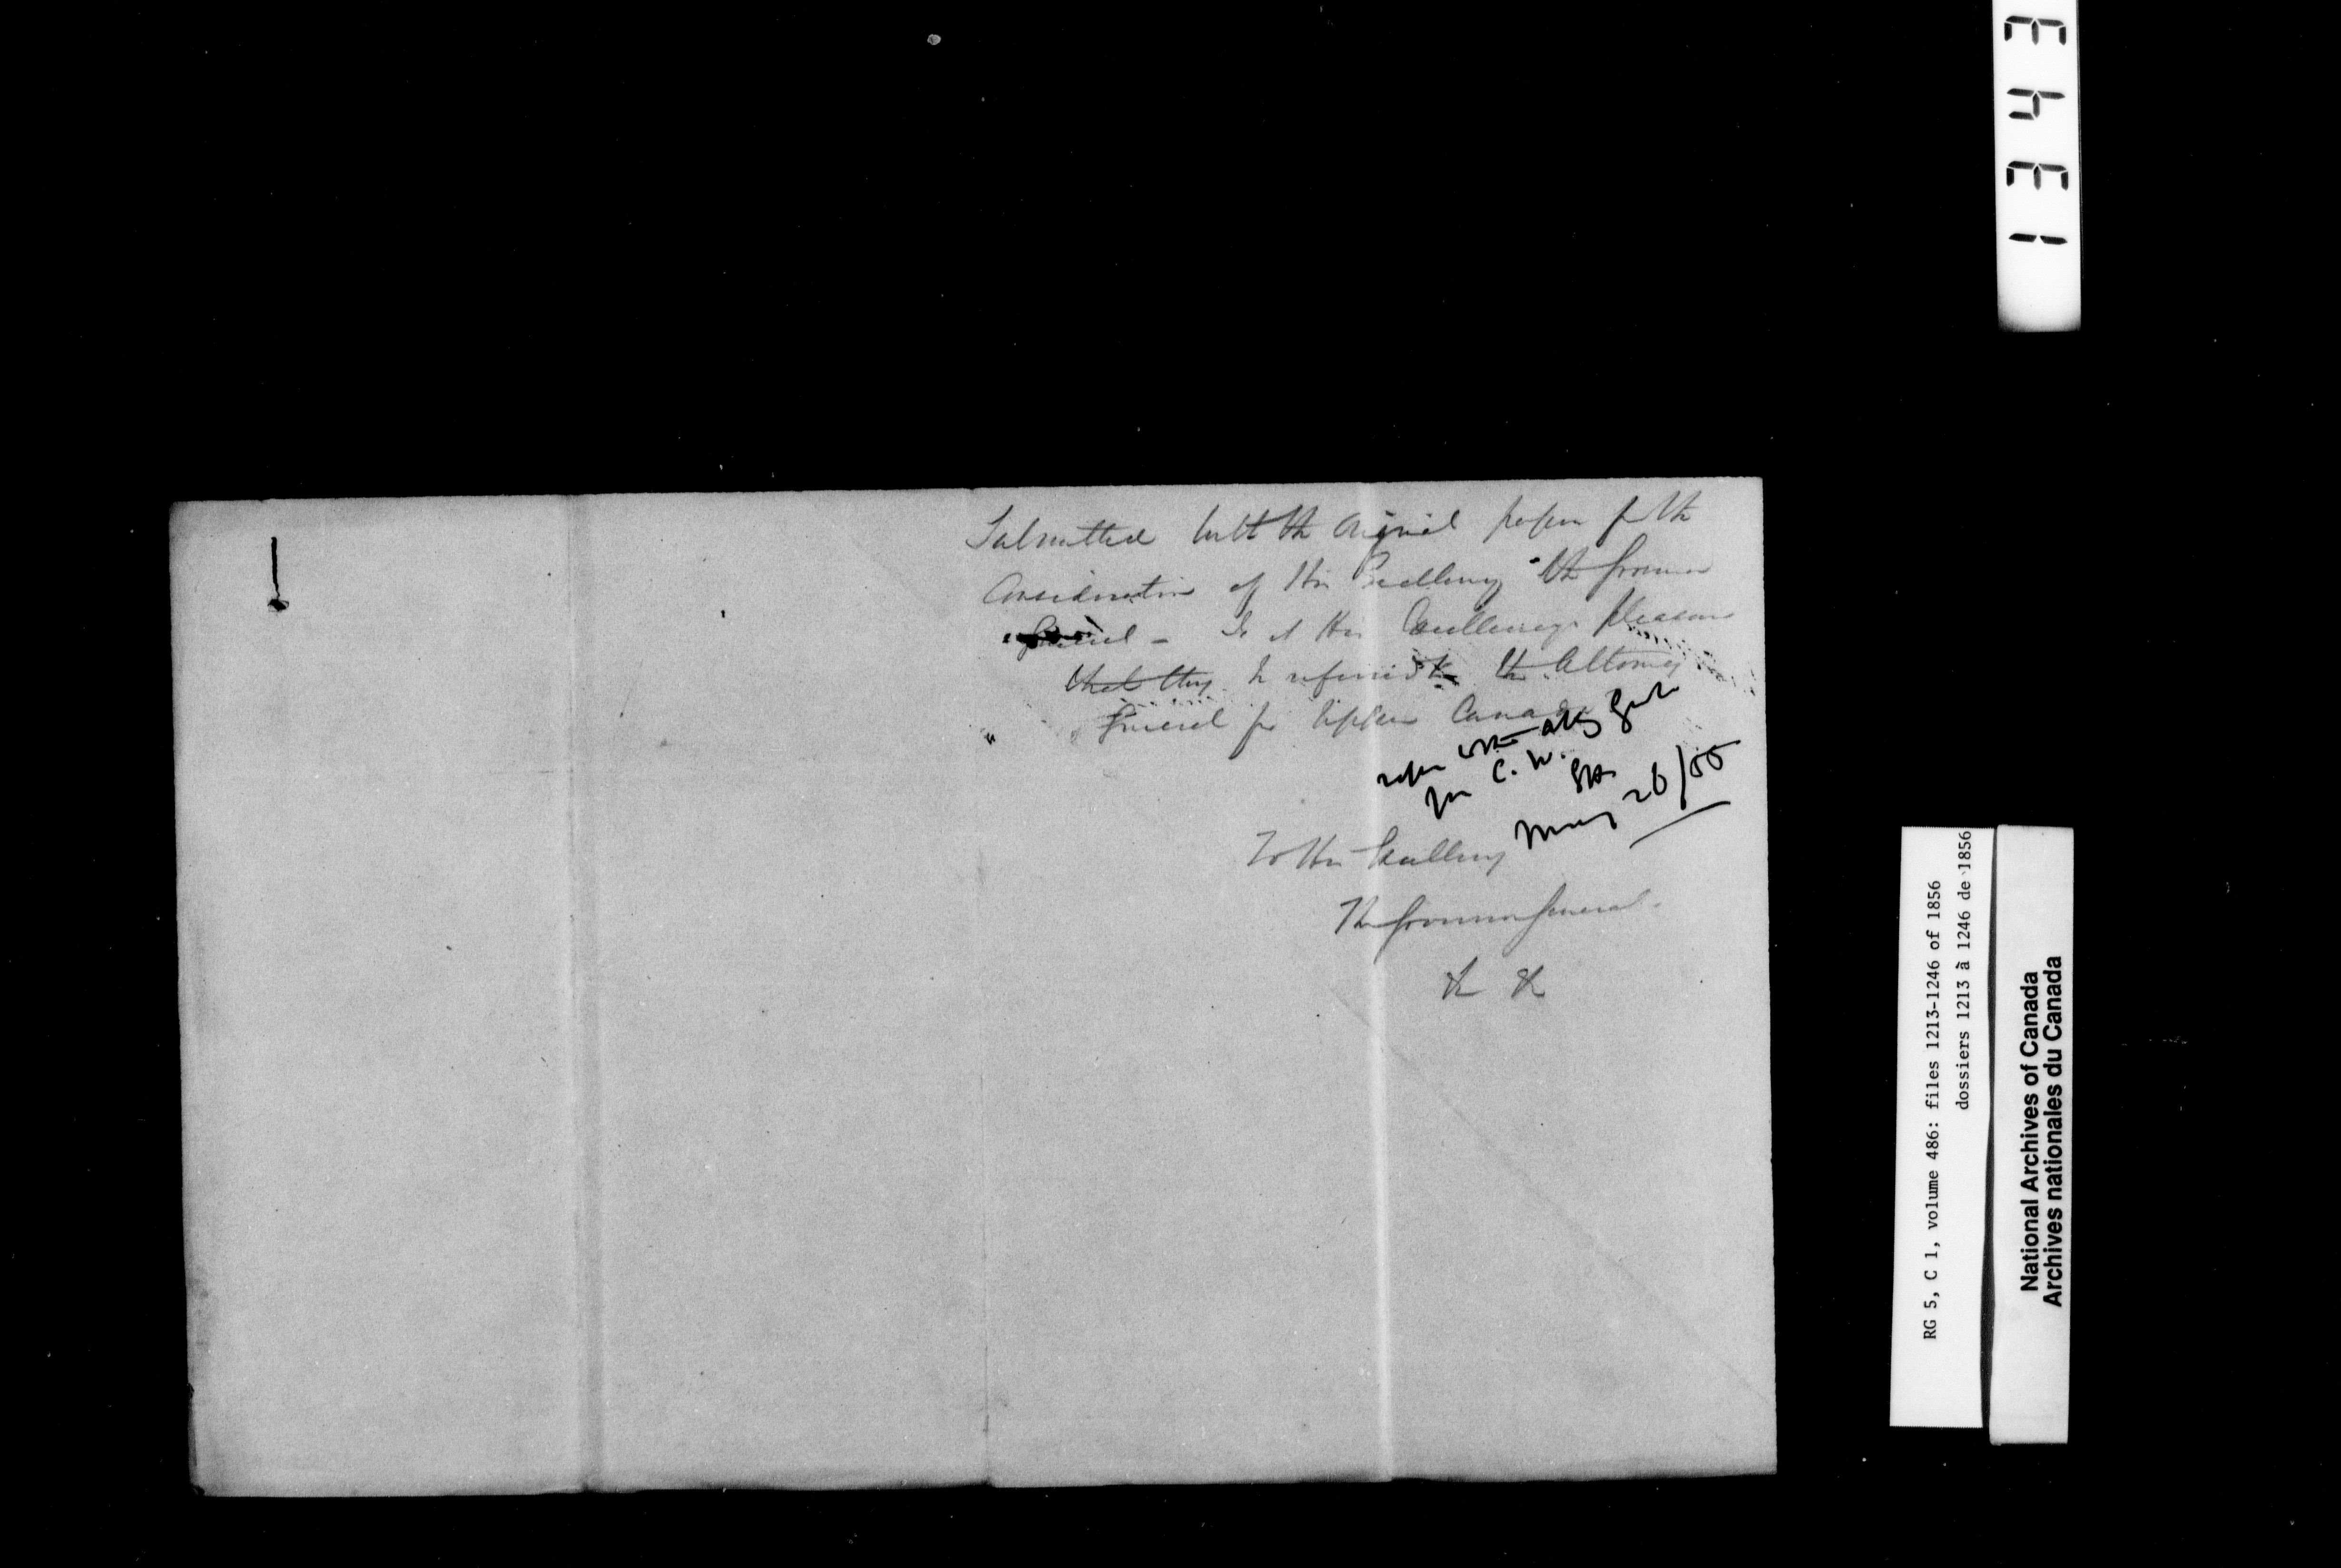 Submitted with the original papers for the
Consideration of His Excellency the Governor
General - Is it His Excellency's pleasure
that they be referred to the Attorney
General for Upper Canada
refer to the Atty Genl
for C. W.
May 26/56
To His Excellency
The Governor General.
&c &c
1343
RG 5, C 1, volume 486: files 1213-1246 of 1856
dossiers 1213 à 1246 de 1856
National Archives of Canada
Archives nationales du Canada